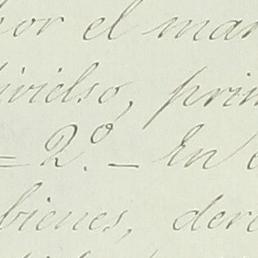 por el mar
diviélso, prin
= 2.º - En
bienes, dere